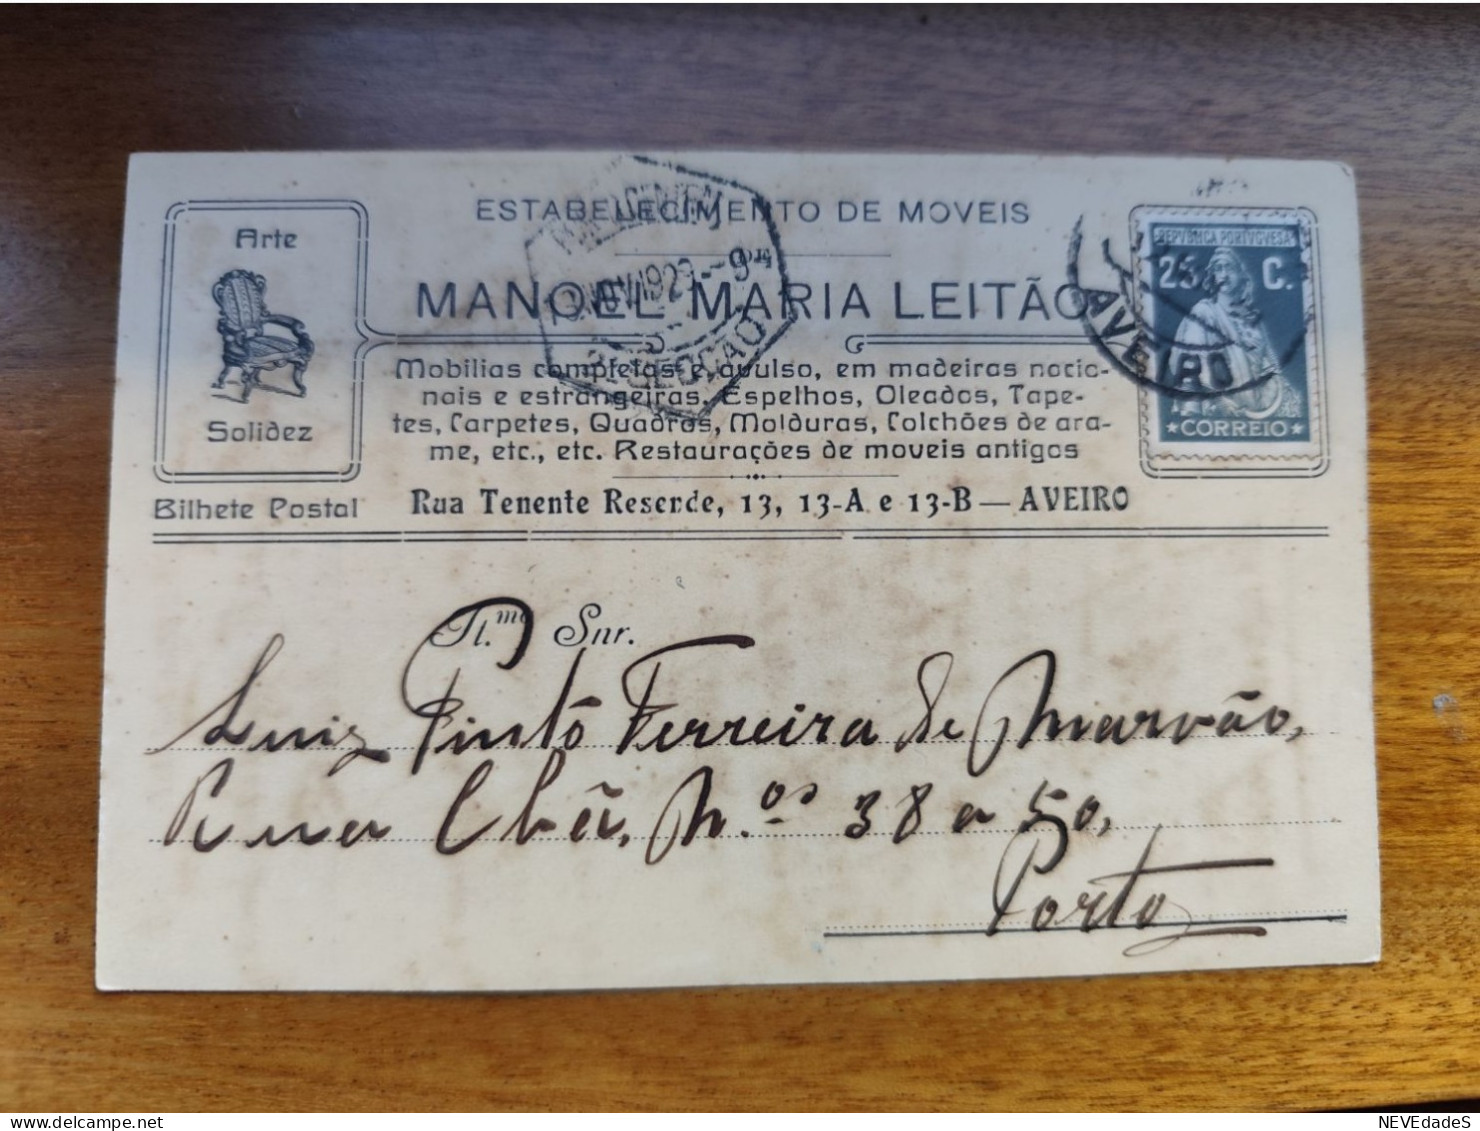 ESTABELECIMENTO DE MOVEIS
Arte
Solidez
Bilhete Postal
MANOEL MARIA LEITÃO
Mobilias completas e avulso, em madeiras nacio-
nais e estrangeiras, Espelhos, Oleados, Tape-
tes, Carpetes, Quadros, Molduras, Colchões de ara-
me, etc., etc. Restaurações de moveis antigos
Rua Tenente Resende, 13, 13-A e 13-B — AVEIRO
NOV.1929
SECÇÃO
REPVBLICA PORTVGVESA
25 C.
CORREIO
AVEIRO
Il.mo Snr.
Luiz Pinto Ferreira de Marvão,
Rua Chã, N.os 38 a 50,
Porto
NEVEdadeS